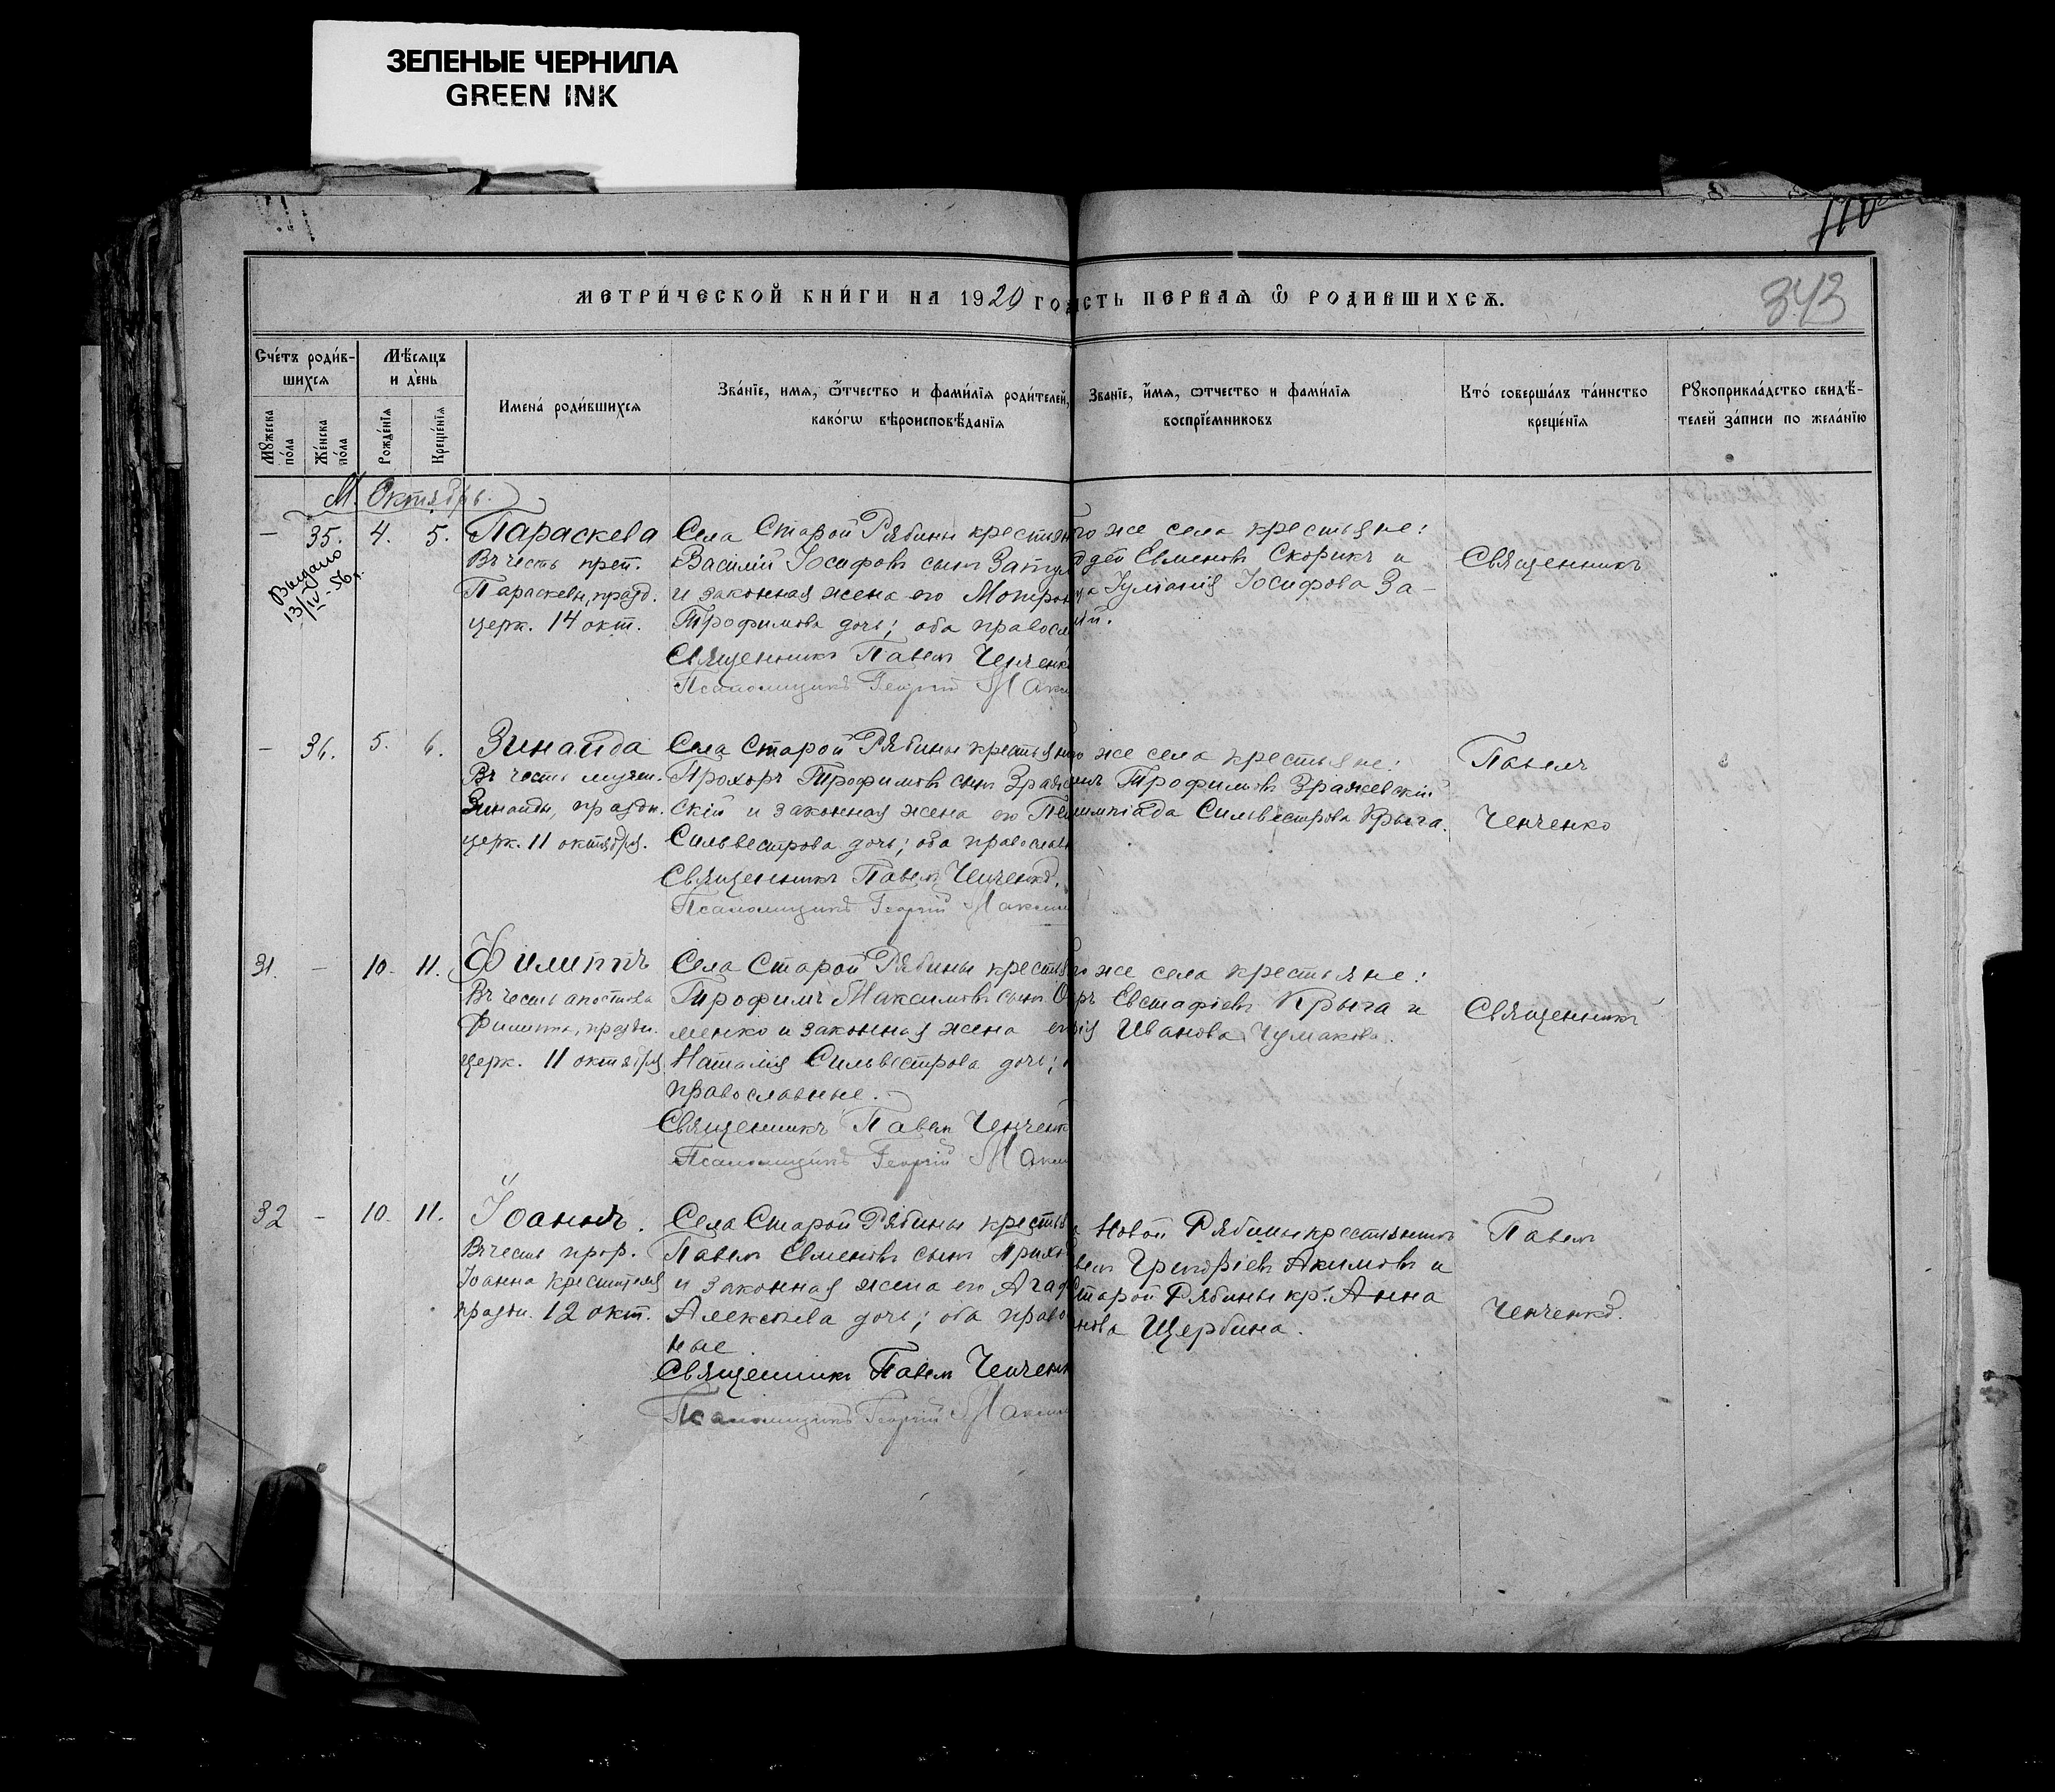 ЗЕЛЕНЫЕ ЧЕРНИЛА
GREEN INK
343
МЕТРИ́ЧЕСКОЙ КНИ́ГИ НА 1920 ГО
СТЬ ПЕРВАѦ Ѿ РОДИВШИХСѦ.
Сче́тъ роди́в-
шихся
Мꙋжеска по́ла
Же́нска по́ла
Мѣ́сяцъ
и де́нь
Рожде́нїя
Креще́нїя
Имена́ роди́вшихся
Зва́нїе, имя, ѻ́тчество и фами́лїя роди́телей,
како́гѡ вѣроисповѣ́данїя
Зва́нїе, и́мя, ѻтчество и фами́лїя
воспрїе́мниковъ
Кто́ соверша́лъ та́инство
креще́нїя
Рꙋкоприкла́дство свидѣ́-
телей за́писи по жела́нїю
М. Октябрь.
— 35. 4. 5.
Выдано
13/IV-56 г.
Параскева
Въ честь преп.
Параскевы, празд.
церк. 14 окт.
Села Старой Рябины крестьян
Василій Іосифовъ сынъ Затул
и законная жена его Мотрон
Трофимова дочь; оба правосл
Священникъ Павелъ Ченченк
Псаломщикъ Георгій Макси
го же села крестьяне:
Евменовъ Скорикъ и
Іосифова За-
ій.
Священникъ
— 36. 5. 6.
Зинаида
Въ честь мучен.
Зинаиды, праздн.
церк. 11 октября.
Села Старой Рябины крестьян
Прохоръ Трофимовъ сынъ Зраже
скій и законная жена его Пе
Сильвестрова дочь; оба православ
Священникъ Павелъ Ченченко.
Псаломщикъ Георгій Максим
го же села крестьяне:
Трофимовъ Зражевскій
импіада Сильвестрова Крыга.
Павелъ
Ченченко
31. — 10. 11.
Филиппъ
Въ честь апостола
Филиппа, праздн.
церк. 11 октября
Села Старой Рябины кресть
Трофимъ Максимовъ сынъ О
менко и законная жена ег
Наталія Сильвестрова дочь;
православные.
Священникъ Павелъ Ченченк
Псаломщикъ Георгій Макси
го же села крестьяне:
ръ Евстафіевъ Крыга и
Иванова Чумакова.
Священникъ
32 — 10. 11.
Іоаннъ.
Въ честь прор.
Іоанна крестителя
праздн. 12 окт.
Села Старой Рябины кресть
Павелъ Евменовъ сынъ Прихо
и законная жена его Агаф
Алексѣева дочь; оба право
ные
Священникъ Павелъ Ченченк
Псаломщикъ Георгій Максим
Новой Рябины крестьянинъ
велъ Григоріевъ Акимовъ и
Старой Рябины кр. Анна
нова Щербина.
Павелъ
Ченченко.